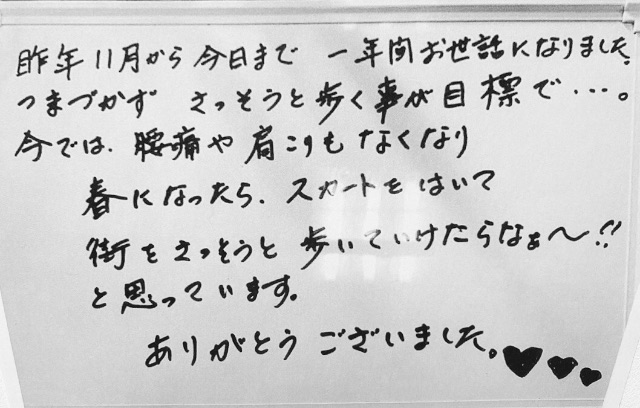 昨年11月から今日まで 一年間お世話になりました。
つまづかず さっそうと歩く事が目標で・・・。
今では、腰痛や肩こりもなくなり
春になったら、スカートをはいて
街をさっそうと歩いていけたらなぁ〜!!
と思っています。
ありがとうございました。♥♥♥